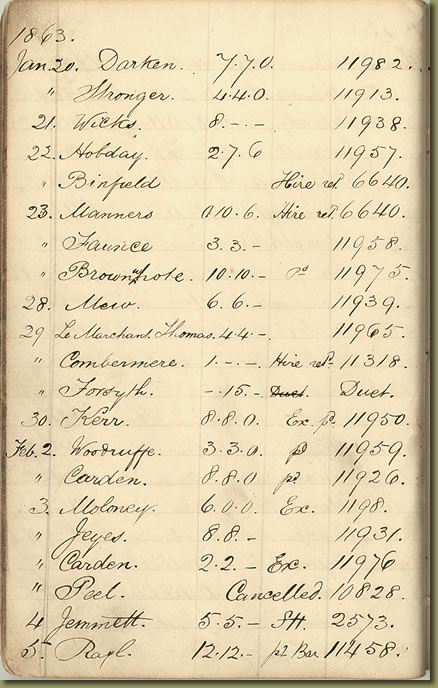 1863.
Jan. 20. Darken. 7.7.0. 11982.
" Stronger. 4.4.0. 11913.
21. Wicks. 8.-.- 11938.
22. Hobday. 2.7.6 11957.
" Binfield Hire ret. 6640.
23. Manners 0.10.6. Hire ret. 6640.
" Faunce 3.3.- 11958.
" Brown 10.10.- pd 11975.
28. Mew. 6.6.- 11939.
29 Le Marchant. Thomas. 4.4.- 11965.
" Combermere. 1.-.- Hire ret. 11318.
" Forsyth. -.15.- Duet. Duet.
30. Kerr. 8.8.0. Ex. pd. 11950.
Feb. 2. Woodruffe. 3.3.0. pd 11959.
" Carden. 8.8.0 pd. 11926.
3. Moloney. 6.0.0. Ex. 1198.
" Jeyes. 8.8.- 11931.
" Carden. 2.2.- Ex. 11976
" Peel. Cancelled. 10828.
4 Jemmett. 5.5.- 2573.
5. 12.12.- pd Bar. 11458.